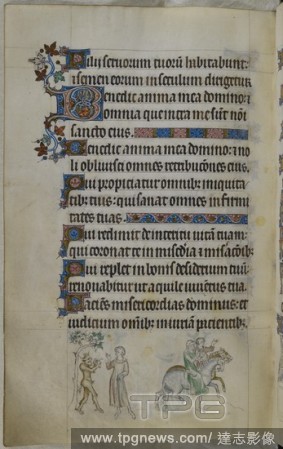 Filii seruorum tuorum habitabunt:
⁊ semen eorum in seculum dirigetur
Benedic anima mea domino: ⁊
omnia que intra me sūt noi
sancto eius.
Benedic anima mea domino: ⁊ no
li obliuisci omnes retribucōnes eius.
Qui propiciatur omnib; iniquita
tib; tuis: qui sanat omnes infirmi
tates tuas.
Qui redimit de interitu uitā tuam:
qui coronat te in mis̄cdia ⁊ misacōib;
Qui replet in bonis desiderium tuū:
renouabitur ut aquile iuuentus tua.
Faciēs misericordias dominus: et
iudicium om̄ib; iniuriā pacientib;
TPG
www.tpgnews.com/ 達志影像